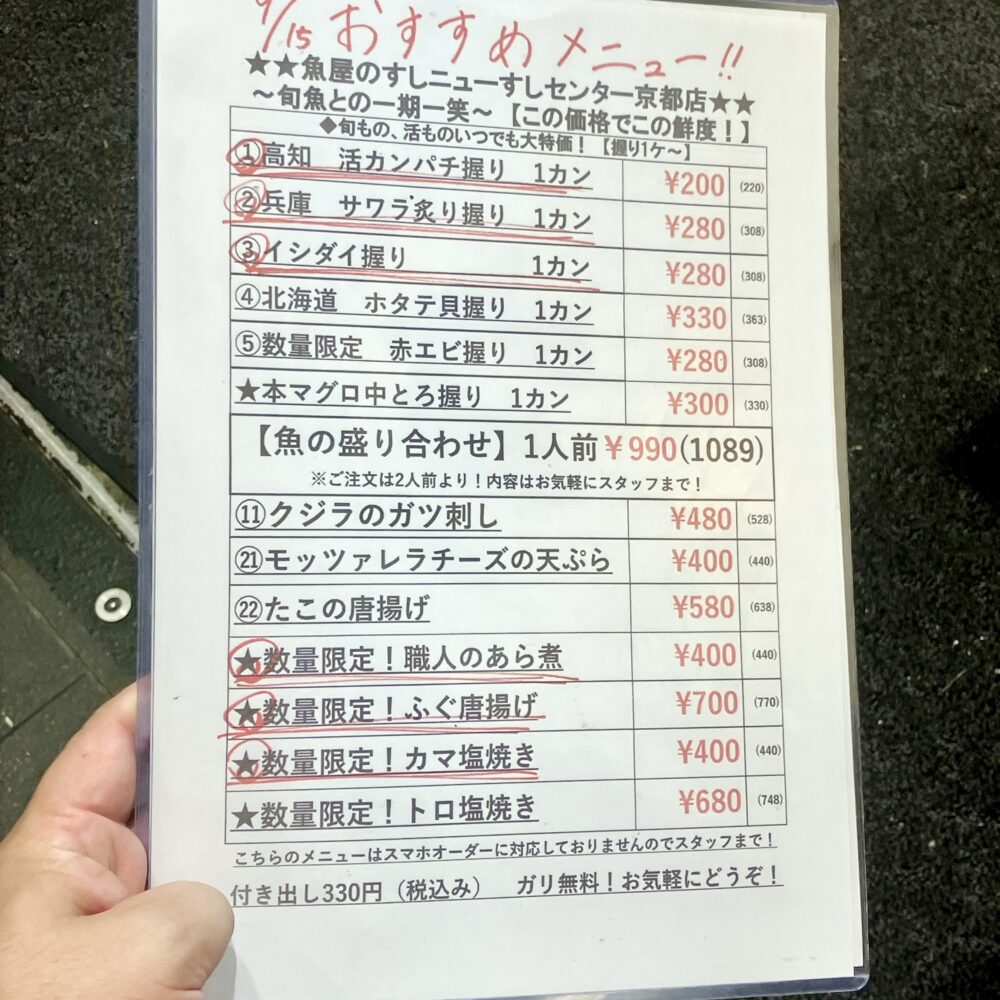 9/15 おすすめメニュー!!
★★魚屋のすしニューすしセンター京都店★★
～旬魚との一期一笑～【この価格でこの鮮度！】
◆旬もの、活ものいつでも大特価！【握り1ケ～】
①高知 活カンパチ握り 1カン ¥200 (220)
②兵庫 サワラ炙り握り 1カン ¥280 (308)
③イシダイ握り 1カン ¥280 (308)
④北海道 ホタテ貝握り 1カン ¥330 (363)
⑤数量限定 赤エビ握り 1カン ¥280 (308)
★本マグロ中とろ握り 1カン ¥300 (330)
【魚の盛り合わせ】1人前¥990(1089)
※ご注文は2人前より！内容はお気軽にスタッフまで！
⑪クジラのガツ刺し ¥480 (528)
㉑モッツァレラチーズの天ぷら ¥400 (440)
㉒たこの唐揚げ ¥580 (638)
★数量限定！職人のあら煮 ¥400 (440)
★数量限定！ふぐ唐揚げ ¥700 (770)
★数量限定！カマ塩焼き ¥400 (440)
★数量限定！トロ塩焼き ¥680 (748)
こちらのメニューはスマホオーダーに対応しておりませんのでスタッフまで！
付き出し330円（税込み） ガリ無料！お気軽にどうぞ！